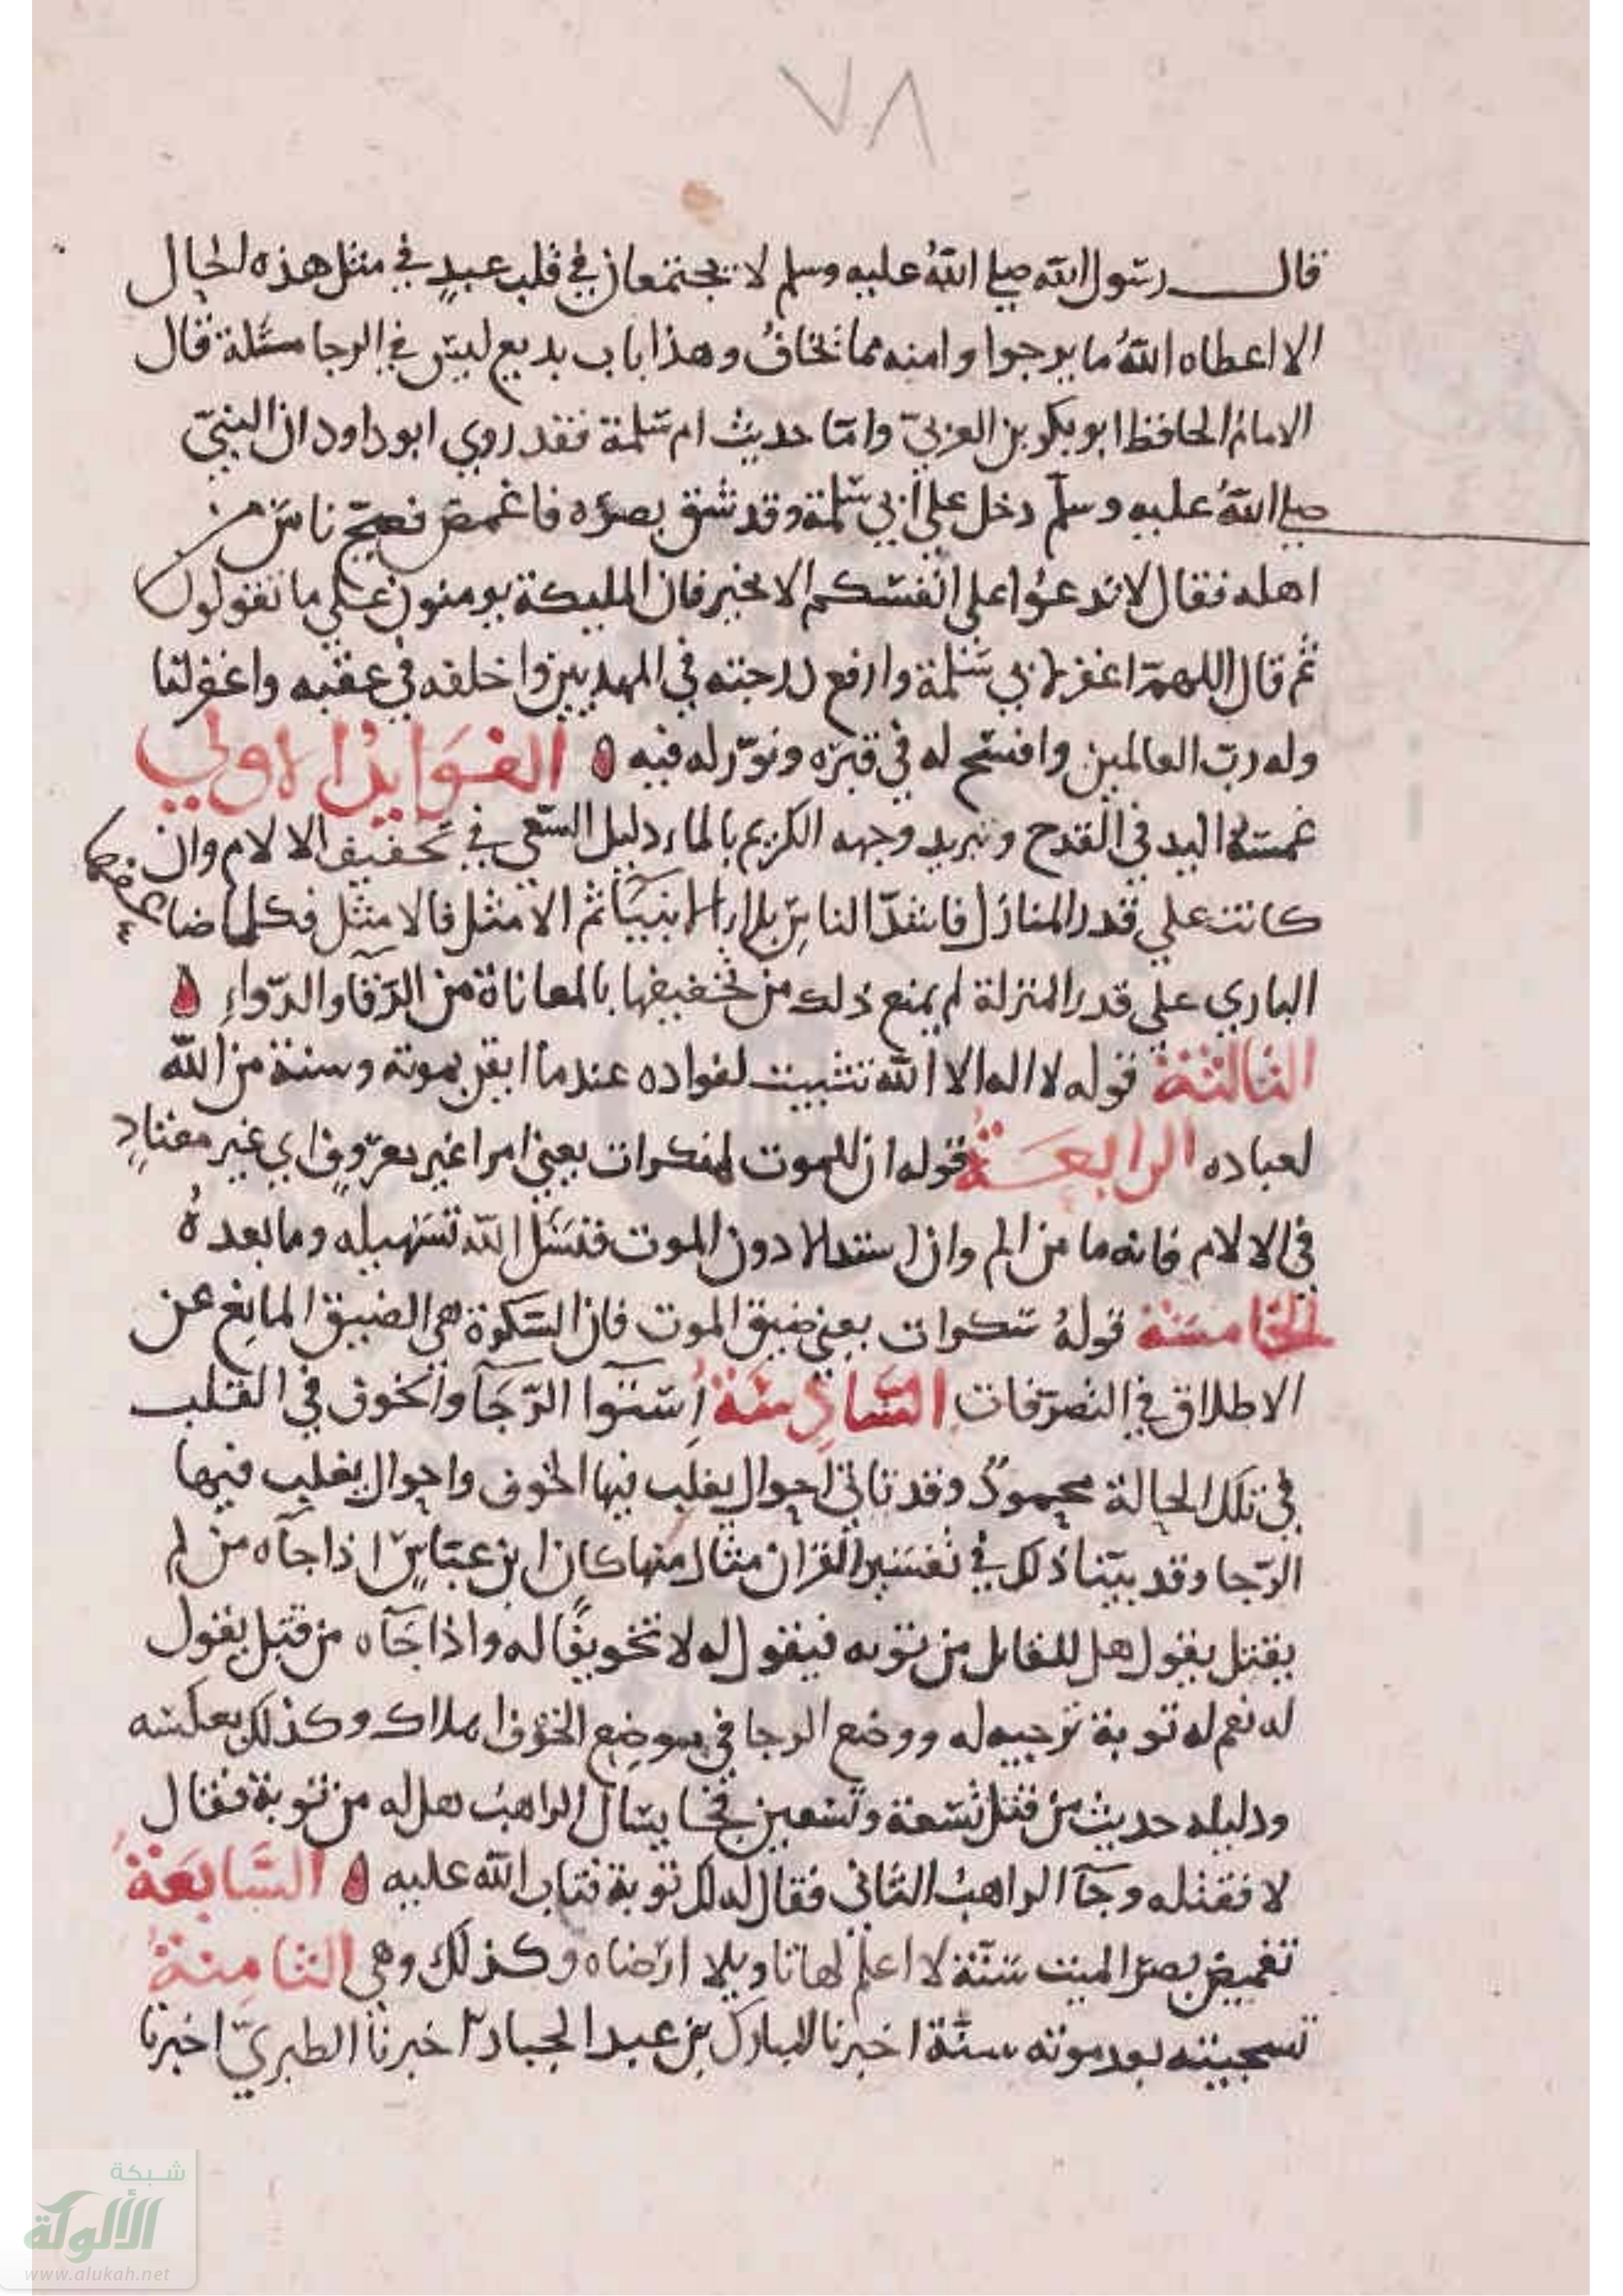 ٧٨
قال رسول الله صلي الله عليه وسلم لا يجتمعان في قلب عبد في مثل هذه الحال
الا اعطاه الله ما يرجوا وامنه مما يخاف وهذا باب بديع ليس في الرجا مسئلة قال
الامام الحافظ ابو بكر بن العربي واما حديث ام سلمة فقد روي ابو داود ان النبي
صلي الله عليه وسلم دخل علي ابي سلمة وقد شق بصره فاغمض فصيح ناس من
اهله فقال لا تدعوا علي انفسكم الا بخير فان المليكة يومنون علي ما تقولون
ثم قال اللهم اغفر لابي سلمة وارفع درجته في المهديين واخلفه في عقبه واغفر لنا
وله رب العالمين وافسح له في قبره ونور له فيه الفوايد الاولي
غمسه اليد في القدح وتبريد وجهه الكريم بالماء دليل السعي في تخفيف الالام وان
كانت علي قدر المنازل فاشد الناس بلاء الانبيا ثم الامثل فالامثل فكلما ضاعفها
الباري علي قدر المنزلة لم يمنع ذلك من تخفيفها بالمعاناة من الرقا والدواء
الثالثة قوله لا اله الا الله تثبيت لفواده عندما ايقن بموته وسنة من الله
لعباده الرابعة قوله ان للموت لمنكرات يعني امرا غير معروف اي غير معتاد
في الالام فانه ما من الم وان اشتد الا دون الموت فنسئل الله تسهيله وما بعده
الخامسة قوله سكرات يعني ضيق الموت فان السكرة هي الضيق المانع عن
الاطلاق في التصرفات السادسة استوا الرجا والخوف في القلب
في تلك الحالة محمود وقد تاتي احوال يغلب فيها الخوف واحوال يغلب فيها
الرجا وقد بينا ذلك في تفسير القران مثال منها كان ابن عباس اذا جاه من لم
يقتل يقول هل للقاتل من توبه فيقول له لا تخويفا له واذا جاه من قتل يقول
له نعم له توبة ترجيه له ووضع الرجا في موضع الخوف اهلاك وكذلك بعكسه
ودليله حديث من قتل تسعة وتسعين فجا يسال الراهب هل له من توبة فقال
لا فقتله وجا الراهب الثاني فقال له لك توبة فتاب الله عليه السابعة
تغميض بصر الميت سنة لا اعلم لها تاويلا ارضاه وكذلك وهي الثامنة
تسجيته بعد موته سنة اخبرنا المبارك بن عبد الجبار اخبرنا الطبري اخبرنا
شبكة
الألوكة
www.alukah.net